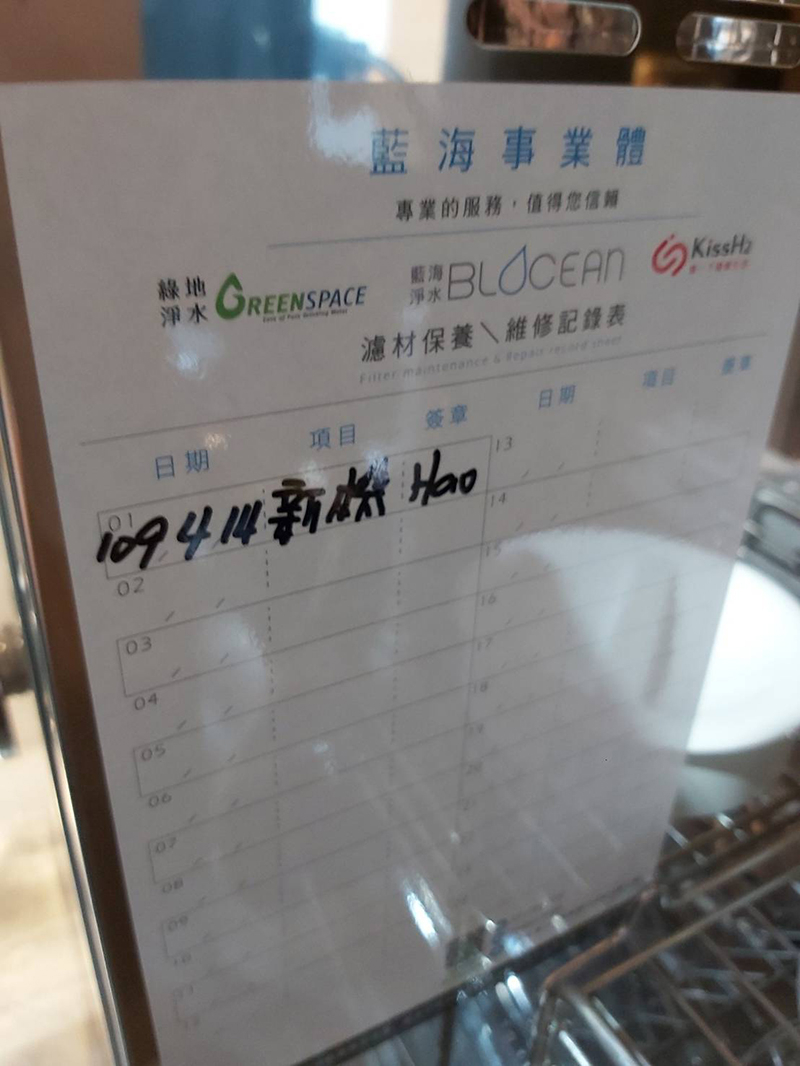 藍海事業體
專業的服務，值得您信賴
綠地淨水 GREENSPACE
藍海淨水 BLOCEAN
KissH2
濾材保養＼維修記錄表
Filter maintenance & Repair record sheet
日期 項目 簽章 日期 項目 簽章
01 109 4 14 新機 Hao 13
02 / / 14
03 / / 15
04 / / 16
05 / / 17
06 / / 18
07 / / 19
08 / / 20
09 / / 21
10
11
12